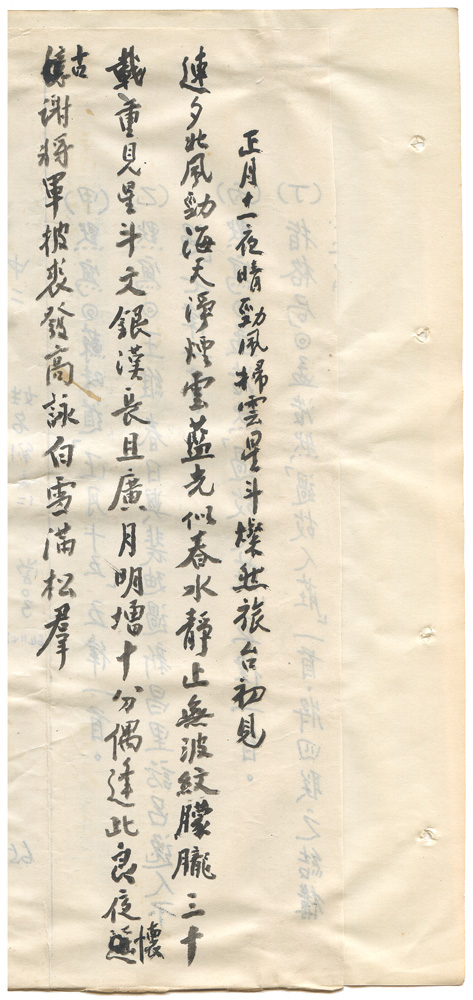 正月十一夜晴勁風掃雲星斗燦然旅台初見
連夕北風勁海天淨煙雲藍光似春水靜止無波紋朦朧三十
載重見星斗文銀漢長且廣月明增十分偶逢此良夜懷
古謝將軍披裘發高詠白雪滿松羣